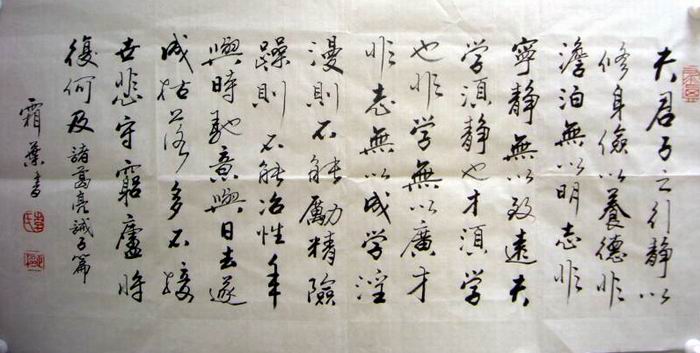 夫君子之行靜以
修身儉以養德非
澹泊無以明志非
寧靜無以致遠夫
学須靜也才須学
也非学無以廣才
非志無以成学淫
漫則不能勵精險
躁則不能冶性年
與時馳意與日去遂
成枯落多不接
世悲守窮廬將
復何及諸葛亮誡子篇
霜葉書